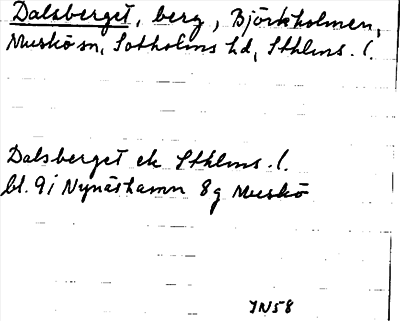 Dalsberget, berg, Björkholmen,
Muskö sn, Sotholms hd, Sthlms. l.
Dalsberget ek Sthlms. l.
bl. 9i Nynäshamn 8g Muskö
JN58